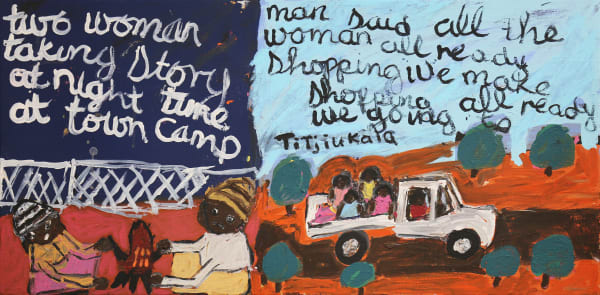 two woman
taking Story
at night time
at town Camp
man said all the
woman all ready
Shopping we make
Shopping all ready
we going to
Titjiukala